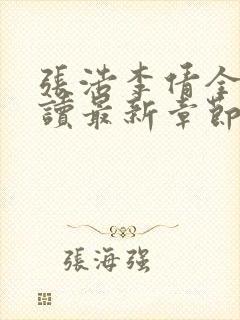 張浩李倩全
讀最新章節
張海强